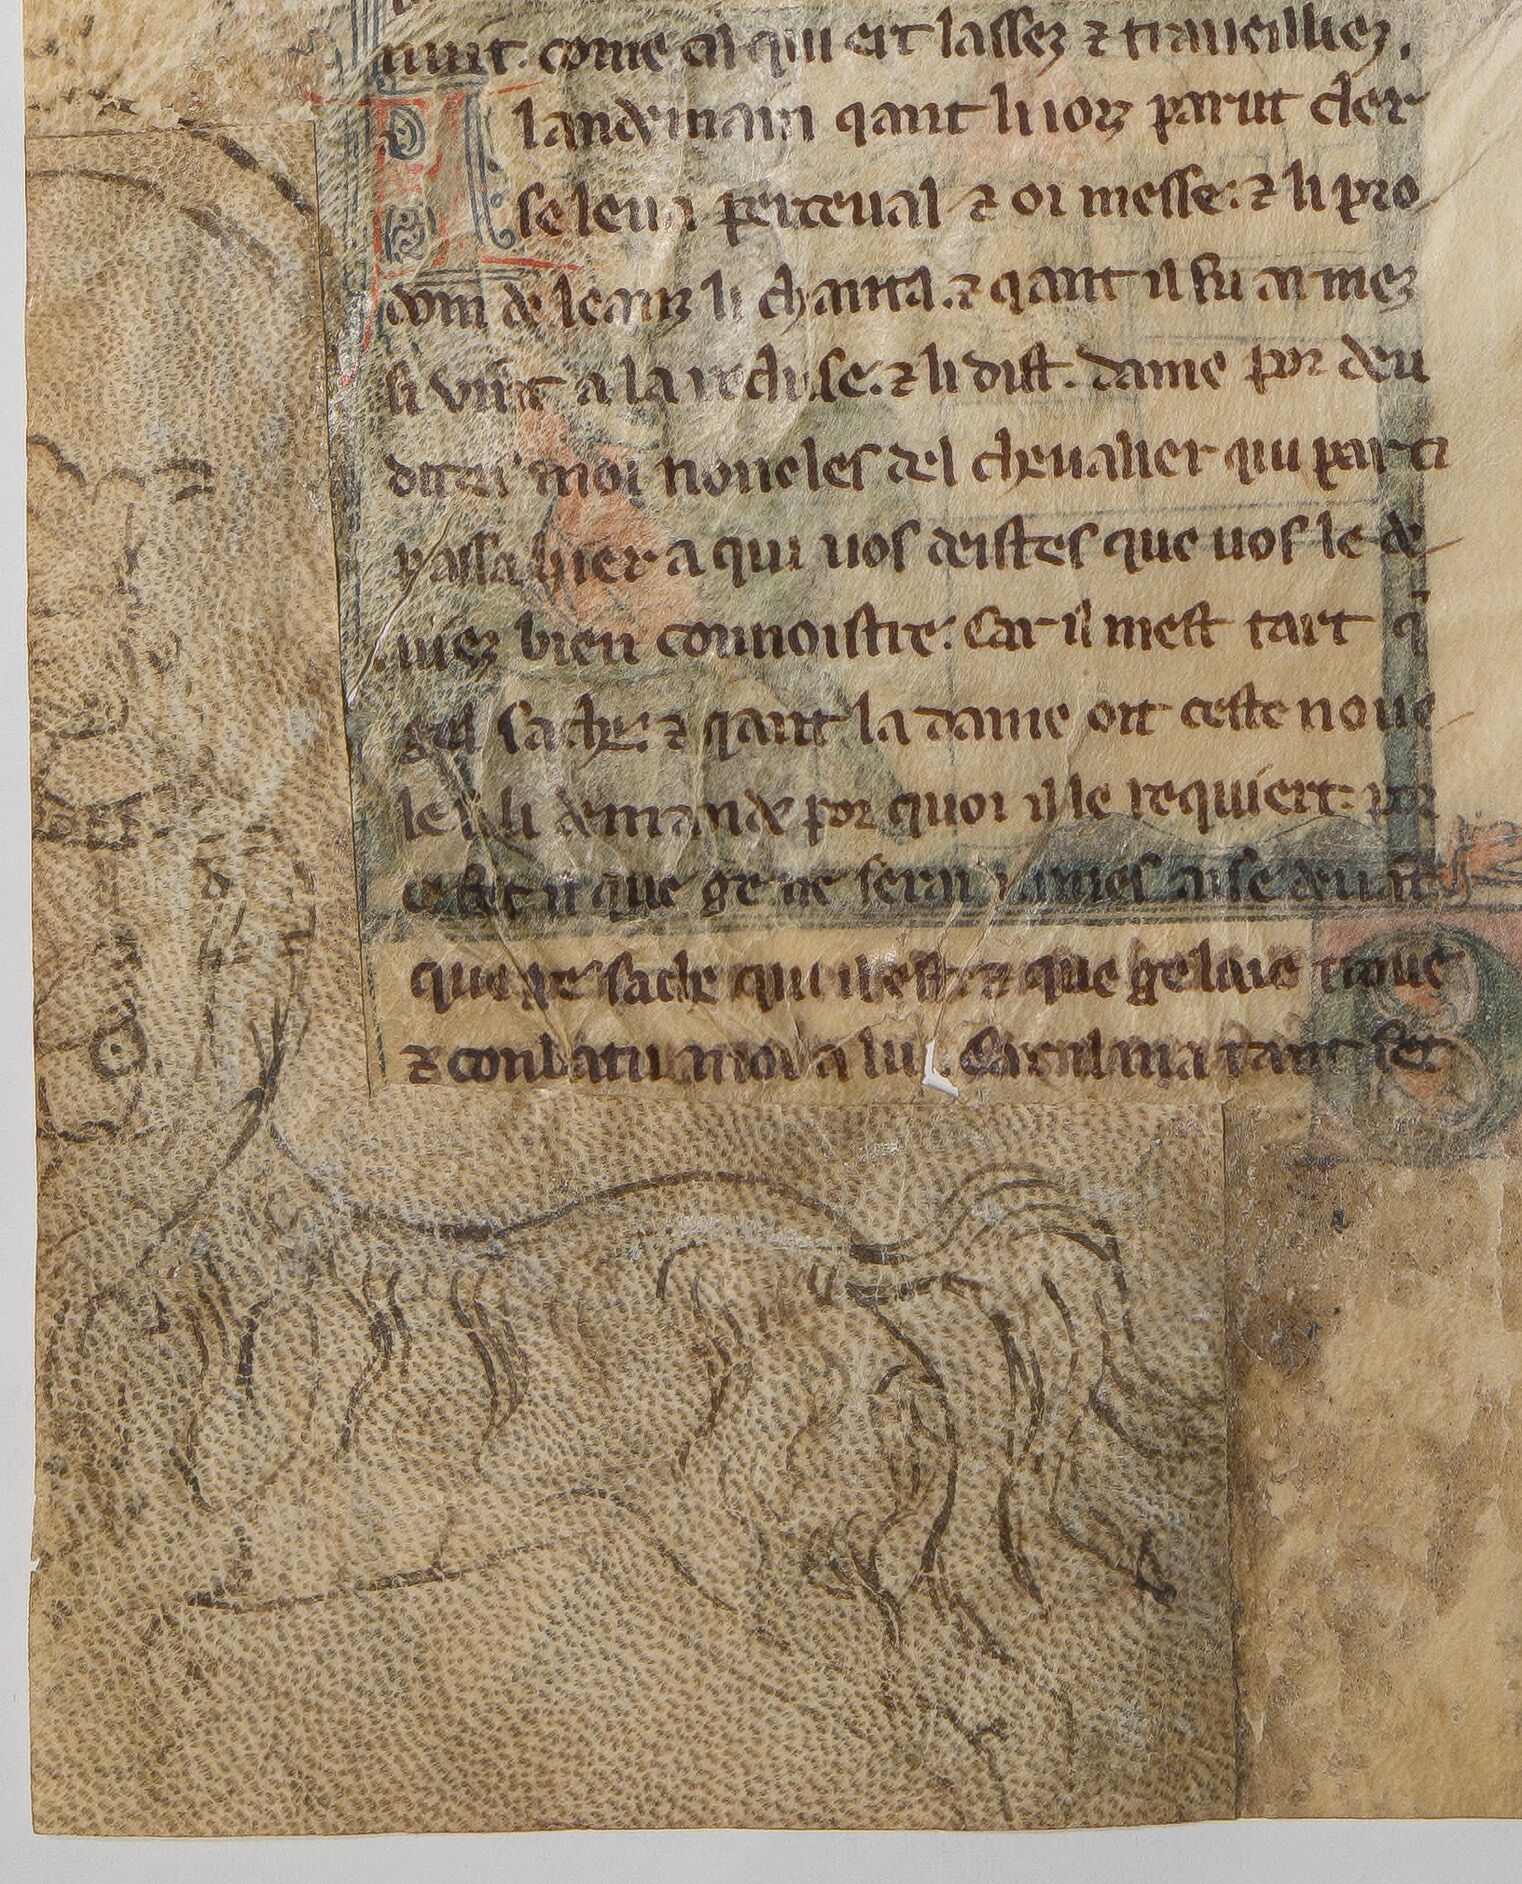 nuit. come cil qui ert lassez ⁊ traueilliez.
L andemain qant li iorz parut cler
se leua perceual ⁊ oi messe: ⁊ li pro
dom de leanz li chanta. ⁊ qant il fu an mes
si vint a la recluse. ⁊ li dist. dame por deu
dites moi noueles del cheualier qui par ci
passa hier a qui uos deistes que uos le de
uiez bien connoistre: Car il mest tart q̄
gel sache. ⁊ qant la dame oit ceste noue
le li demande por quoi il le requiert: por
ce fet il que ge ne serai iames aise deuāt
que ge sache qui il est. ⁊ que ge laie troue
⁊ conbatu moi a lui. Car il ma tant fet